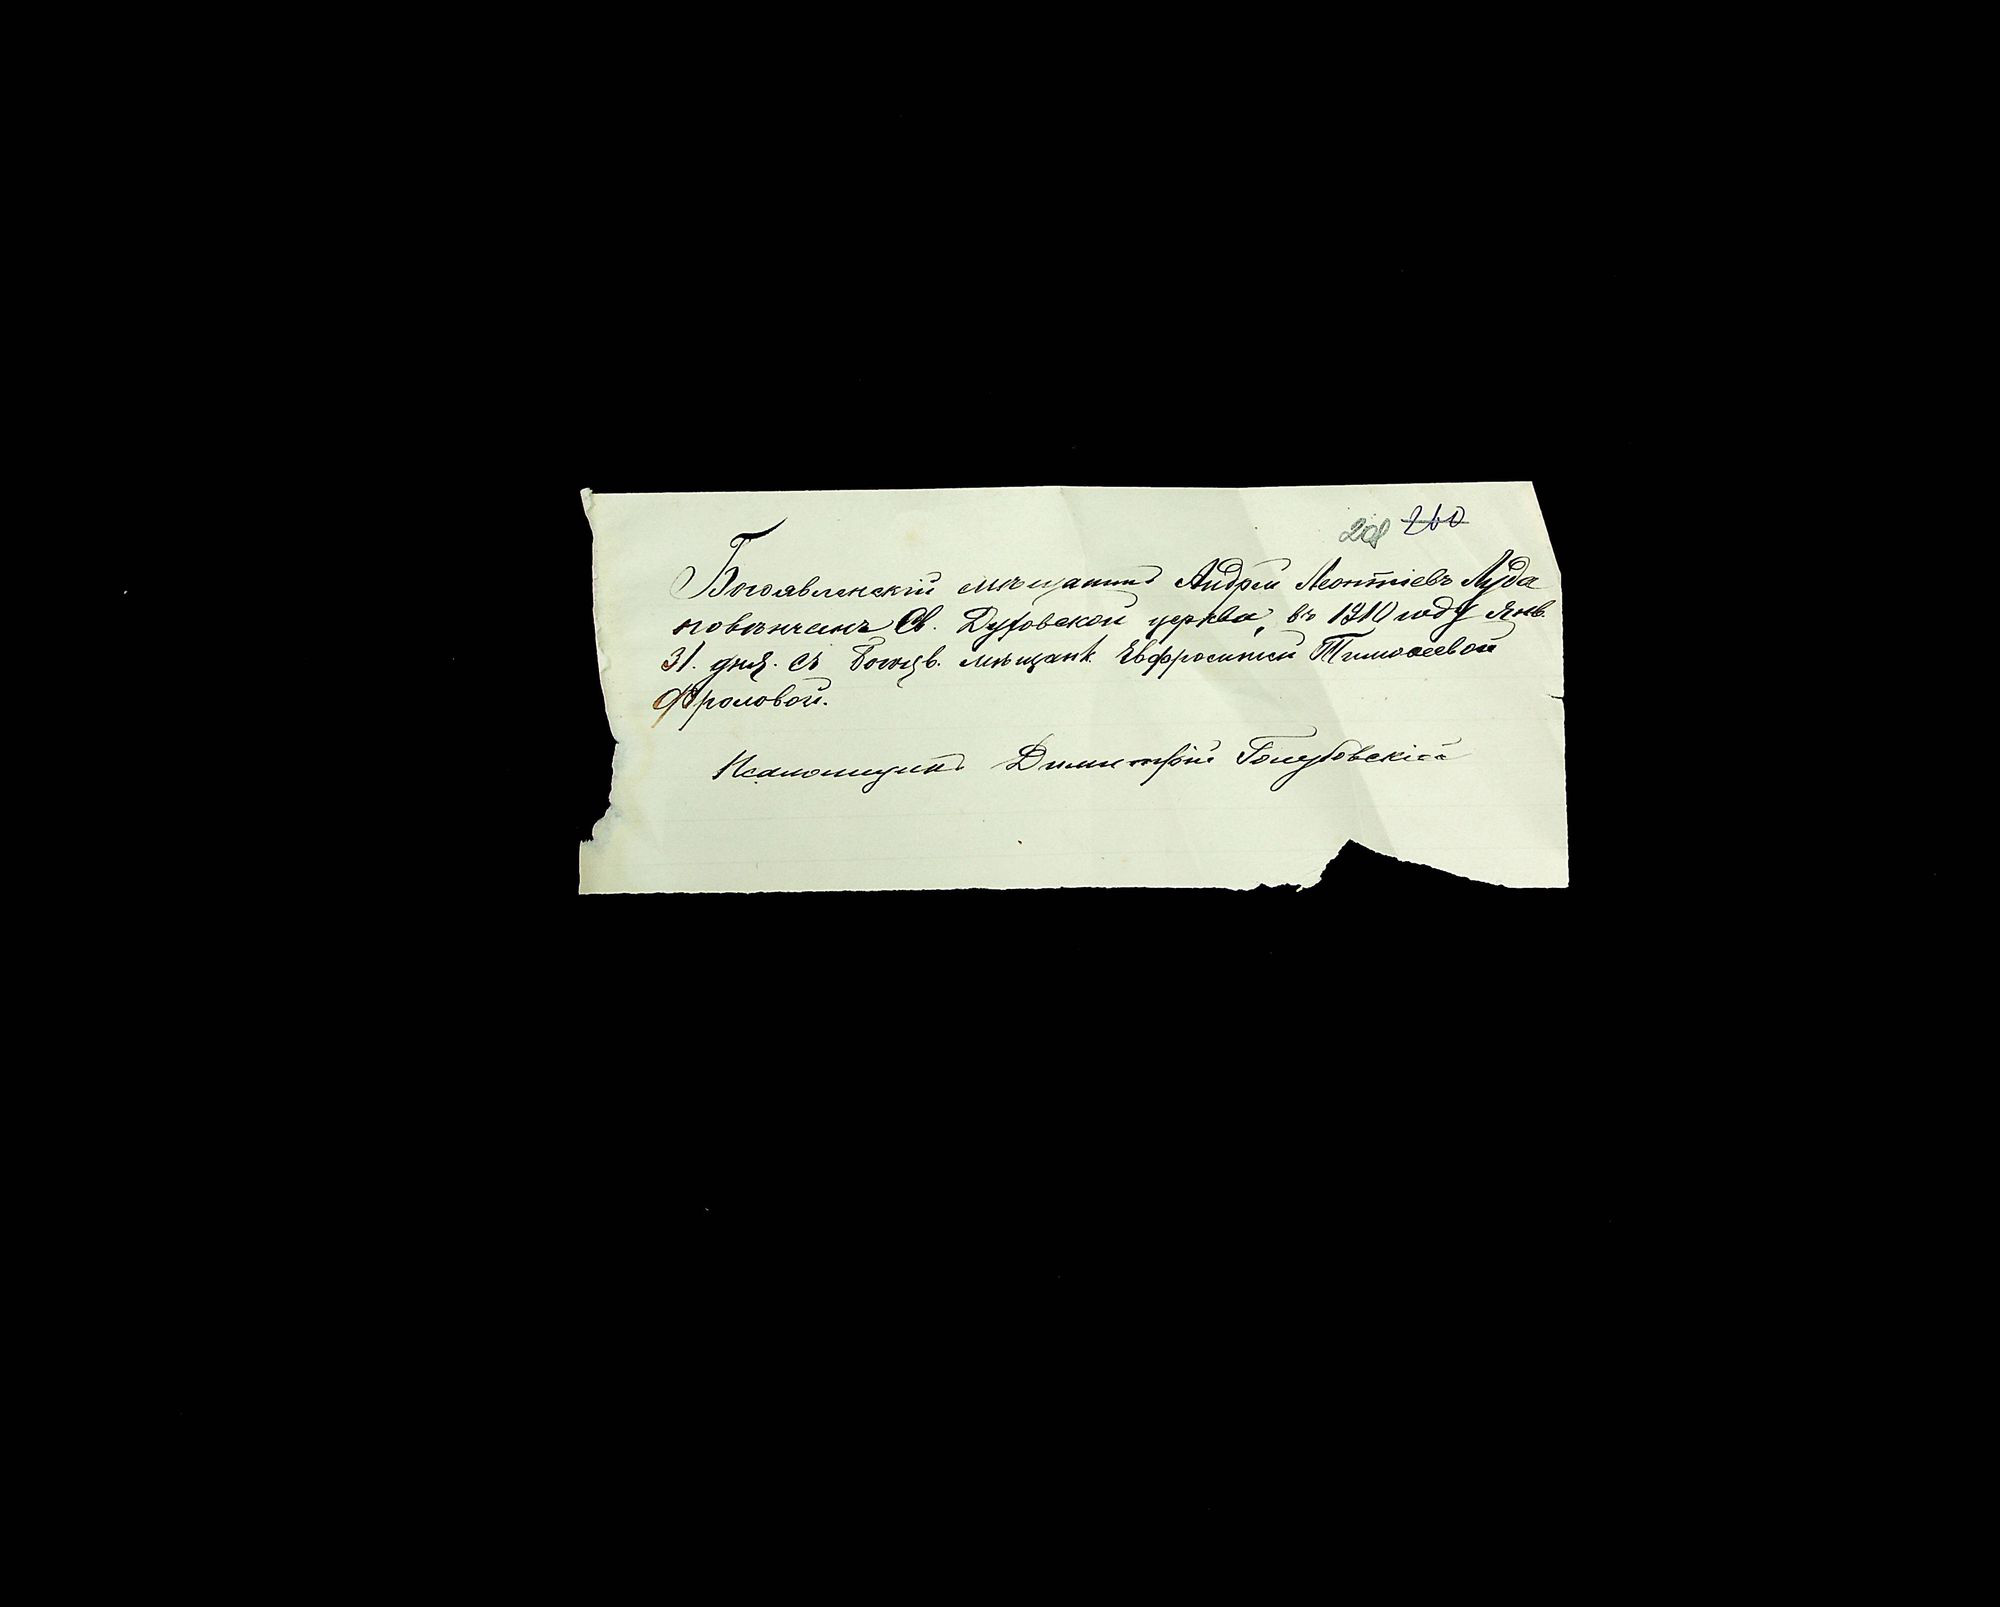 208 260
Богоявленскій мѣщанинъ Андрей Леонтіевъ Луда
повѣнчанъ Св. Духовской церкви, въ 1910 году Янв.
31. дня. съ Богояв. мѣщанк. Евфросиніей Тимоѳеевой
Фроловой.
Псаломщикъ Димитрій Голубовскій